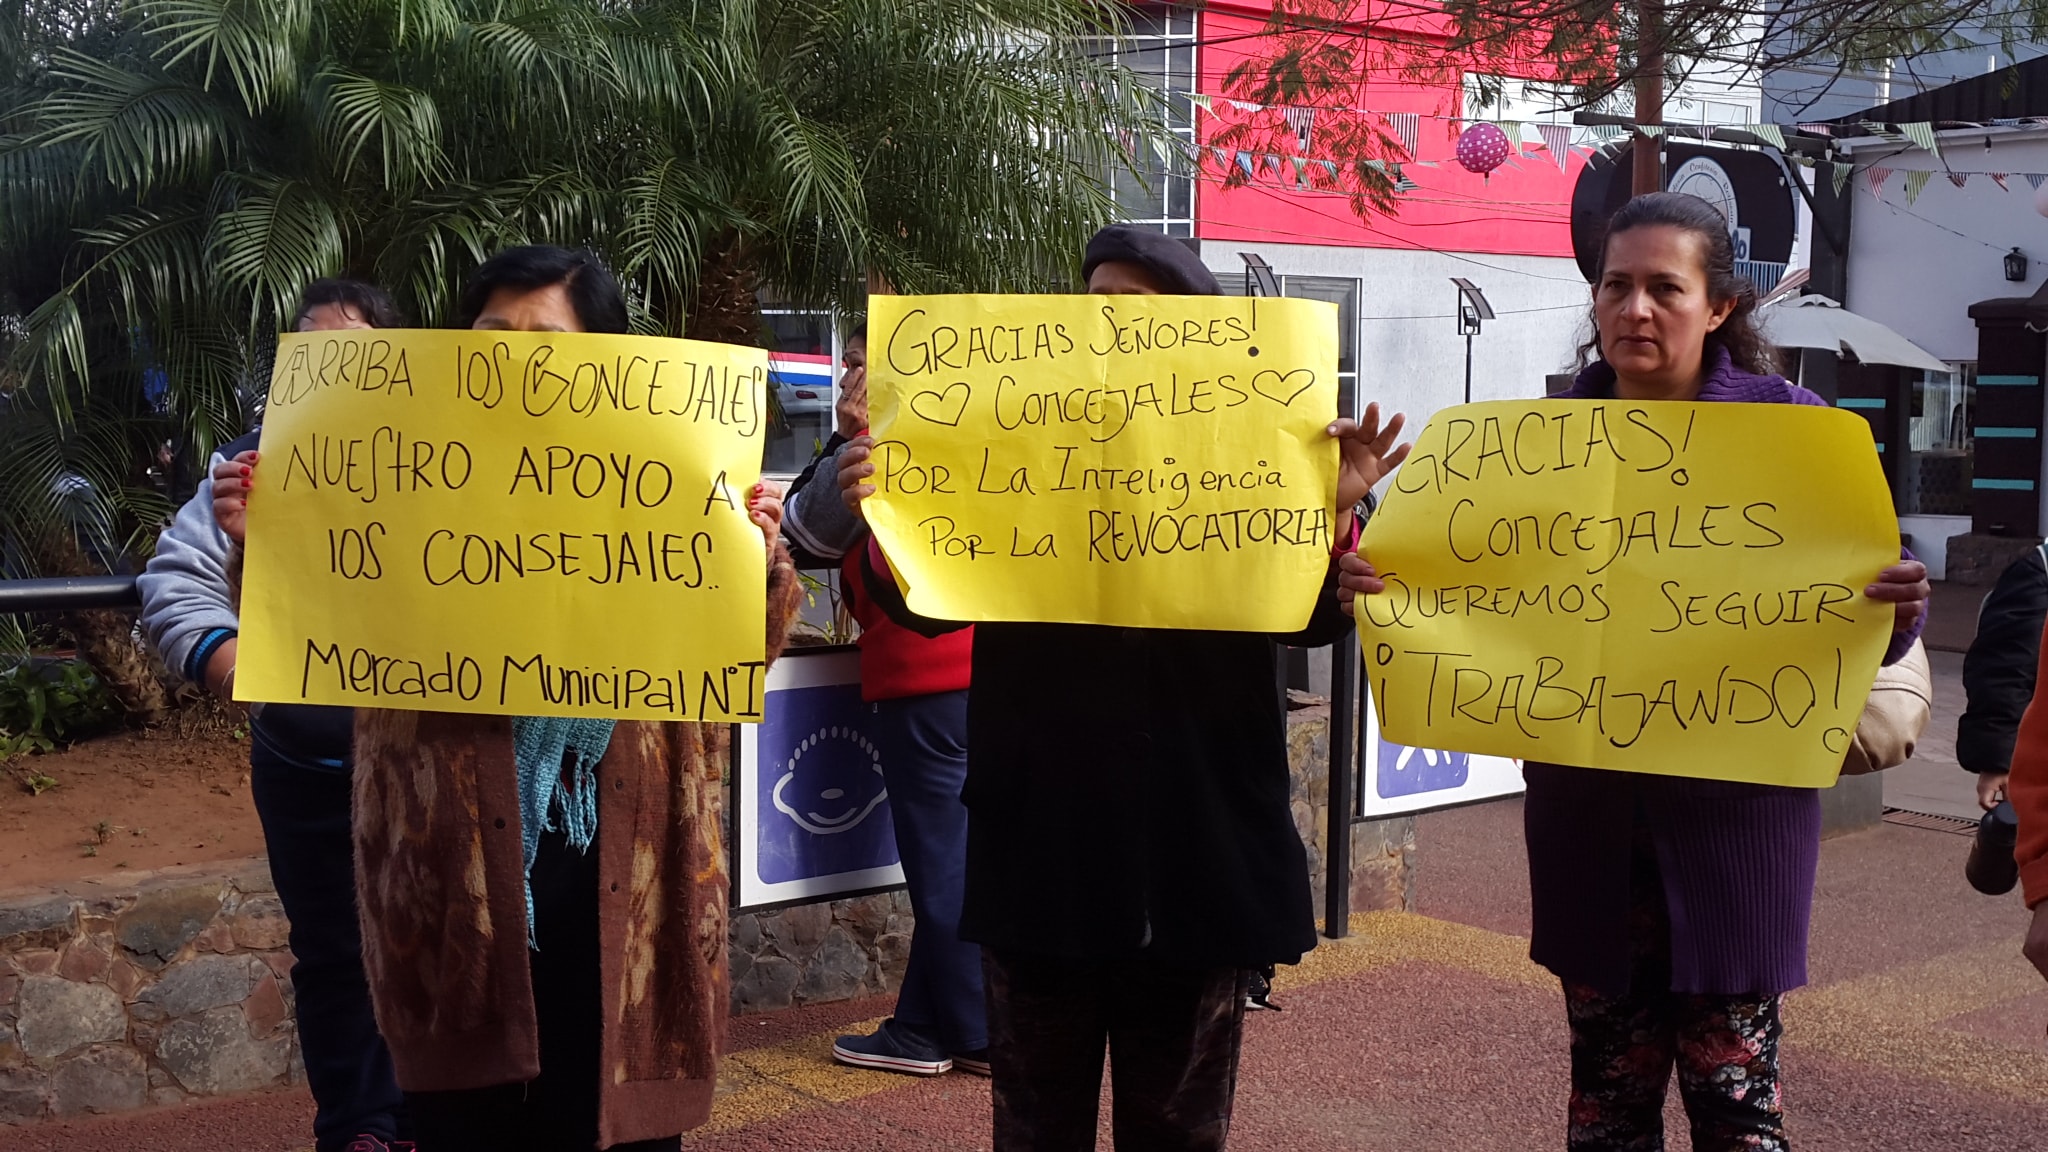 ARRIBA lOS CONCEJALES
NUEStRO APOYO A
lOS CONSEJAlES..
Mercado Municipal N°I
GRACIAS SEÑORES!
CONCEJALES
POR La InTeligencia
POR La REVOCATORIA
GRACIAS!
CONCEJALES
QUEREMOS SEGUIR
¡TRABAJANDO!